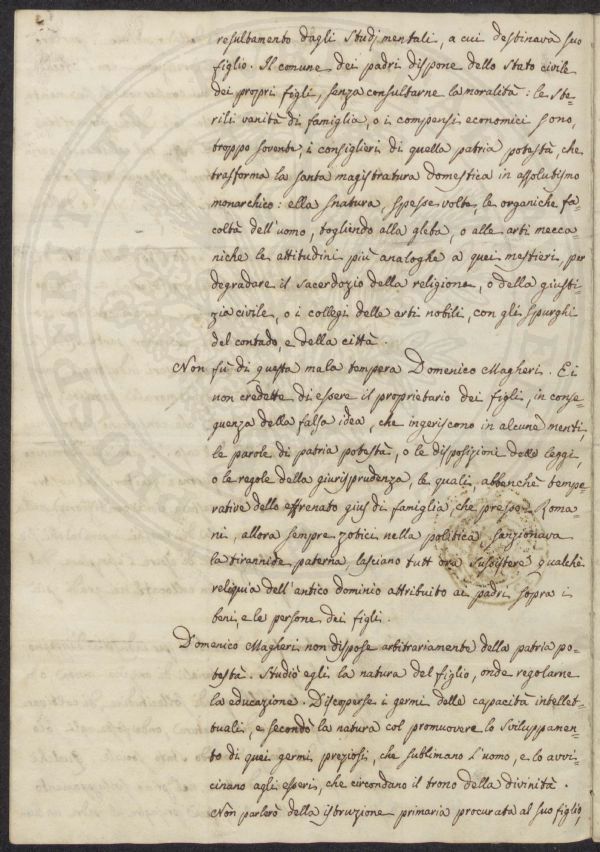 resultamento dagli Studj mentali, a cui destinava suo
figlio. Il comune dei padri dispone dello Stato civile
dei proprj figli, senza consultarne la moralità: le ste=
rili vanità di famiglia, o i compensi economici sono,
troppo sovente, i consiglieri di quella patria potestà, che
trasforma la santa magistratura domestica in assolutismo
monarchico: ella snatura, spesse volte, le organiche fa=
coltà dell'uomo, togliendo alla gleba, o alle arti mecca=
niche le attitudini più analoghe a quei mestieri, per
degradare il sacerdozio della religione, o della giusti=
zia civile, o i collegi delle arti nobili, con gli spurghi
del contado, e della città.
Non fù di questa mala tempera Domenico Magheri. Ei
non credette di essere il proprietario dei figli, in conse=
guenza della falsa idea, che ingeriscono in alcune menti,
le parole di patria potestà, o le disposizioni delle leggi,
o le regole della giurisprudenza, le quali, abbenchè tempe=
rative dello effrenato gius di famiglia, che presso i Roma=
ni, allora sempre zotici nella politica sanzionava
la tirannide paterna, lasciano tutt'ora sussistere qualche
reliquia dell'antico dominio attribuito ai padri sopra i
beni, e le persone dei figli.
Domenico Magheri non dispose arbitrariamente della patria po=
testà. Studiò egli la natura del figlio, onde regolarne
la educazione. Discoperse i germi delle capacità intellet=
tuali, e secondò la natura col promuovere lo sviluppamen=
to di quei germi preziosi, che sublimano l'uomo, e lo avvi=
cinano agli esseri, che circondano il trono della divinità.
Non parlerò della istruzione primaria procurata al suo figlio,